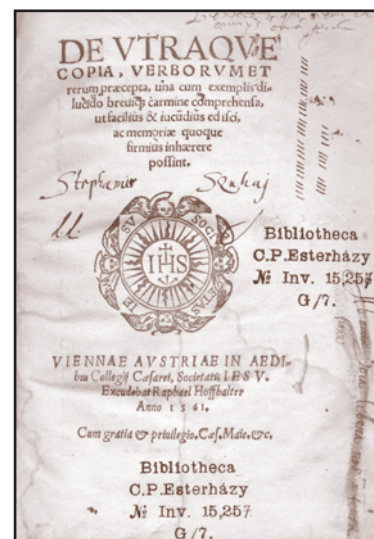 DE VTRAQVE
COPIA, VERBORVM ET
rerum præcepta, una cum exemplis di-
lucido breuiq; carmine comprehensa,
ut facilius & iucũdius edisci,
ac memoriæ quoque
firmius inhærere
possint.
Stephanus
IHS
Bibliotheca
C.P.Esterházy
№ Inv. 15,257
G/7.
VIENNAE AVSTRIAE IN AEDI-
bus Collegij Cæsarei, Societatis IESV.
Excudebat Raphael Hoffhalter
Anno 1561.
Cum gratia & priuilegio. Cæs. Maie. &c.
Bibliotheca
C.P.Esterházy
№ Inv. 15,257
G/7.